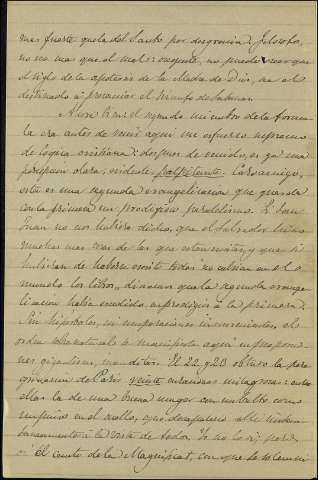 mas fuerte que la del Santo por desgracia; filosofo,
no ve mas que el mal: creyente, no puede creer que
el siglo de la apoteosis de la Madre de Dios, sea el
destinado a presenciar el triunfo de Satanas.
el segundo de la formu
la era antes de venir aqui un esfuerzo supremo
de logica cristiana: despues de venido, es ya una
percepcion clara, evidente, palpitante. Caro amigo,
esta es una segunda evangelizacion que guarda
con la primera un prodigioso paralelismo. Si San
Juan no nos hubiera dicho, que el Salvador hizo
muchas mas cosas de las que estan escritas, y que si
hubieran de haberse escrito todas no cabrian en el
mundo los libros, diriamos que la segunda evange
lizacion habia excedido en prodigios a la primera.
Sin hipérboles, sin el
orden sobrenatural se manifiesta aqui en propor
nes gigantescas, inauditas. El 22 y 23 obtuvo la pere
grinacion de Paris veinte curaciones milagrosas: entre
ellas la de una buena muger con un bulto como
un puño en el cuello, que desaparecio
a la vista de todos. Yo no lo vi; pero
si el canto de la Magnificat, con que se solemni